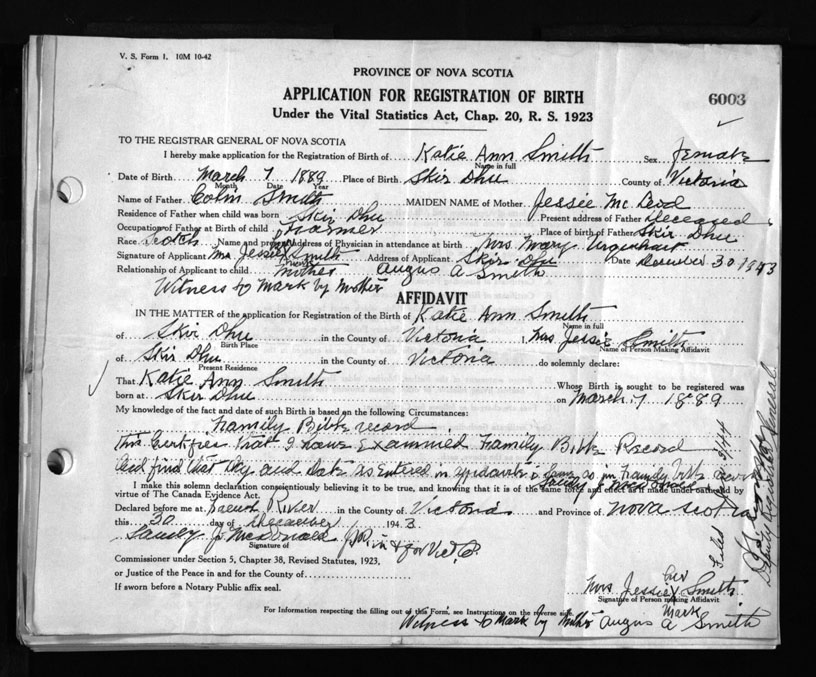 V. S. Form 1. 10M 10-42
PROVINCE OF NOVA SCOTIA
APPLICATION FOR REGISTRATION OF BIRTH
6003
Under the Vital Statistics Act, Chap. 20, R. S. 1923
TO THE REGISTRAR GENERAL OF NOVA SCOTIA
I hereby make application for the Registration of Birth of Katie Ann Smith Sex female
Name in full
Date of Birth March 7 1889 Place of Birth Skir Dhu County of Victoria
Month Date Year
Name of Father Colin Smith MAIDEN NAME of Mother Jessie McLeod
Residence of Father when child was born Skir Dhu Present address of Father Deceased
Occupation of Father at Birth of child Farmer Place of birth of Father Skir Dhu
Race Scotch Name and present Address of Physician in attendance at birth Mrs. Mary Urquhart
Signature of Applicant Mrs Jessie X Smith Address of Applicant Skir Dhu Date December 30 1943
Relationship of Applicant to child mother Angus A Smith
Witness to Mark by Mother
AFFIDAVIT
IN THE MATTER of the application for Registration of the Birth of Katie Ann Smith
Name in full
of Skir Dhu in the County of Victoria, Mrs. Jessie Smith
Birth Place Name of Person Making Affidavit
of Skir Dhu in the County of Victoria do solemnly declare:
Present Residence
That Katie Ann Smith Whose Birth is sought to be registered was
born at Skir Dhu on March 7 1889
My knowledge of the fact and date of such Birth is based on the following Circumstances:
Family Bible record
This Certifies that I have Examined Family Bible Record
and find that Day and Date as Entered in affidavit is same as in Family Bible
I make this solemn declaration conscientiously believing it to be true, and knowing that it is of the same force and effect as if made under oath and by
virtue of The Canada Evidence Act.
Declared before me at French River in the County of Victoria and Province of Nova Scotia
this 30 day of December 1943.
Sandy J. McDonald J.P. in & for Vict. C.
Signature of
Commissioner under Section 5, Chapter 38, Revised Statutes, 1923,
or Justice of the Peace in and for the County of
If sworn before a Notary Public affix seal.
Mrs Jessie X Smith
her
Mark
Signature of Person making Affidavit
For Information respecting the filling out of this Form, see Instructions on the reverse side.
Witness to Mark by Mother Angus A Smith
Filed
Deputy Registrar General.